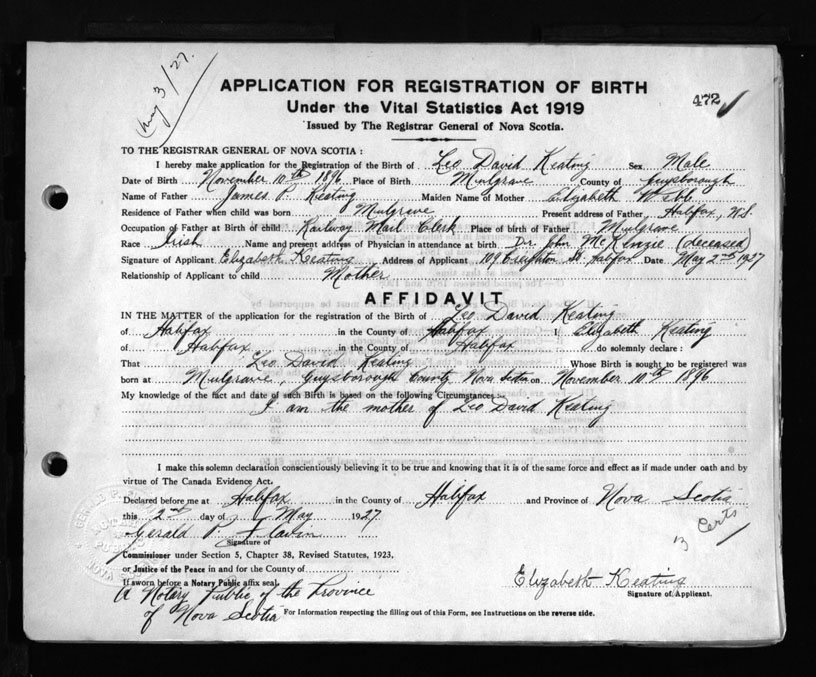 May 3/27.
APPLICATION FOR REGISTRATION OF BIRTH
472
Under the Vital Statistics Act 1919
Issued by The Registrar General of Nova Scotia.
TO THE REGISTRAR GENERAL OF NOVA SCOTIA :
I hereby make application for the Registration of the Birth of Leo David Keating Sex Male
Date of Birth November 10th 1896 Place of Birth Mulgrave County of Guysborough
Name of Father James P. Keating Maiden Name of Mother Elizabeth
Residence of Father when child was born Mulgrave Present address of Father Halifax, N.S.
Occupation of Father at Birth of child Railway Mail Clerk Place of birth of Father Mulgrave
Race Irish Name and present address of Physician in attendance at birth Dr. John McKenzie (deceased)
Signature of Applicant Elizabeth Keating Address of Applicant 109 Creighton St. Halifax Date May 2nd 1927
Relationship of Applicant to child Mother
AFFIDAVIT
IN THE MATTER of the application for the registration of the Birth of Leo David Keating
of Halifax in the County of Halifax I, Elizabeth Keating
of Halifax in the County of Halifax do solemnly declare :
That Leo David Keating Whose Birth is sought to be registered was
born at Mulgrave, Guysborough County, Nova Scotia on November 10th 1896
My knowledge of the fact and date of such Birth is based on the following Circumstances :—
I am the mother of Leo David Keating
I make this solemn declaration conscientiously believing it to be true and knowing that it is of the same force and effect as if made under oath and by
virtue of The Canada Evidence Act.
Declared before me at Halifax in the County of Halifax and Province of Nova Scotia
this 2nd day of May 1927
Gerald P. Flavin
Signature of
3 Certs
Commissioner under Section 5, Chapter 38, Revised Statutes, 1923,
or Justice of the Peace in and for the County of
If sworn before a Notary Public affix seal.
Elizabeth Keating
Signature of Applicant.
A Notary Public of the Province
of Nova Scotia
For Information respecting the filling out of this Form, see Instructions on the reverse side.